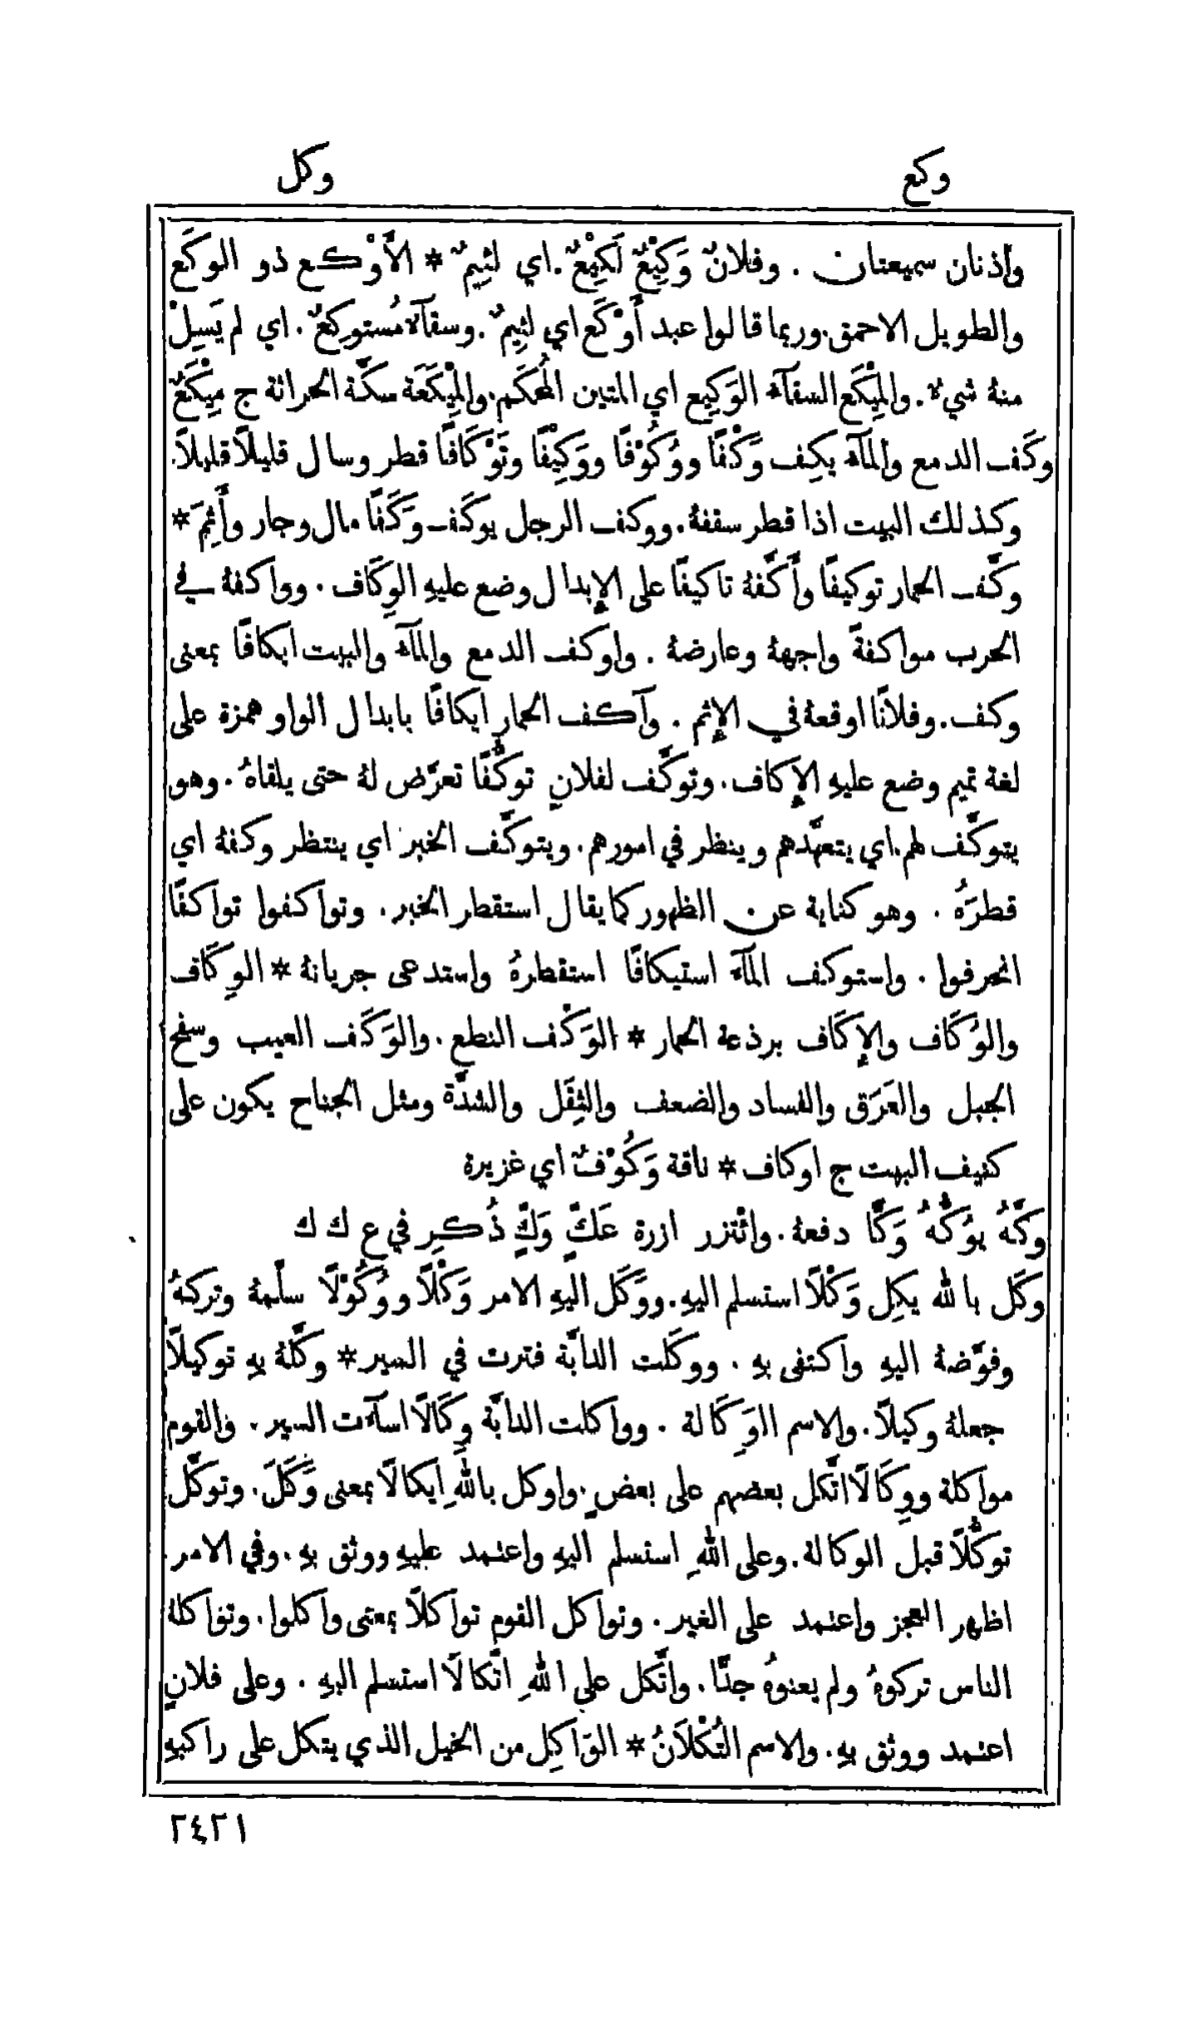 وكع
وكل
واذنان سميعتان . وفلانٌ وَكِيْعٌ لَكِيْعٌ . اي لئيمٌ * الأَوْكع ذو الوكَع
والطويل الاحمق . وربما قالوا عبد أَوْكَع اي لئيمٌ . وسقآء مُستوكِعٌ . اي لم يَسِلْ
منهُ شيء . والمِيْكَع السقآء الوَكِيع اي المتين المُحكَم . والمِيْكَعَة سكَّة الحراثة ج مِيْكَعٌ
وكَف الدمع والمآء يكِف وَكْفًا ووُكُوْفًا ووَكِيْفًا وتَوْكَافًا قطر وسال قليلاً قليلاً .
وكذلك البيت اذا قطر سقفهُ . ووكف الرجل يوكَف وَكَفًا مال وجار وأَثِمَ *
وكَّف الحمار توكيفًا وأَكَّفهُ تاكيفًا على الإِبدال وضع عليهِ الوِكَاف . وواكفهُ في
الحرب مواكفةً واجههُ وعارضهُ . واوكف الدمع والمآء والبيت ايكافًا بمعنى
وكف . وفلانًا اوقعهُ في الإِثم . وآكف الحمار ايكافًا بابدال الواو همزة على
لغة تميم وضع عليهِ الإِكاف . وتوكَّف لفلانٍ توكُّفًا تعرَّض لهُ حتى يلقاهُ . وهو
يتوكَّف لهم اي يتعهَّدهم وينظر في امورهم . ويتوكَّف الخبر اي ينتظر وكفهُ اي
قطرَهُ . وهو كناية عن الظهور كما يقال استقطر الخبر . وتواكفوا تواكفًا
انحرفوا . واستوكف المآء استيكافًا استقطرهُ واستدعى جريانهُ * الوِكَاف
والوُكَاف والإِكَاف برذعة الحمار * الوَكْف النطع . والوَكَف العيب وسفح
الجبل والعَرَق والفساد والضعف والثِقَل والشدَّة ومثل الجناح يكون على
كنيف البيت ج اوكاف * ناقة وَكُوْفٌ اي غزيرة
وكَّهُ يوُكُّهُ وَكًّا دفعهُ . وائتزر ازرة عَكَّ وَكَّ ذُكِر في ع ك ك
وكَل بالله يكِل وَكْلاً استسلم اليهِ . ووَكَل اليهِ الامر وَكْلاً ووُكُوْلاً سلَّمهُ وتركهُ
وفوَّضهُ اليهِ واكتفى بهِ . ووكلت الدابَّة فترت في السير * وكَّلهُ بهِ توكيلاً
جعلهُ وكيلاً . والاسم الوَكَالة . وواكلت الدابَّة وِكَالاً اسآءت السير . والقوم
مواكلة ووِكَالاً اتَّكل بعضهم على بعضٍ . واوكل باللهِ ايكالاً بمعنى وَكَلَ . وتوكَّل
توكُّلاً قبل الوكالة . وعلى اللهِ استسلم اليهِ واعتمد عليهِ ووثق بهِ . وفي الامر
اظهر العجز واعتمد على الغير . وتواكل القوم تواكلاً بمعنى واكلوا . وتواكلهُ
الناس تركوهُ ولم يعنوهُ جدًّا . واتَّكل على اللهِ اتّكالاً استسلم اليهِ . وعلى فلانٍ
اعتمد ووثق بهِ . والاسم التُكْلاَنُ * الوَاكِل من الخيل الذي يتكل على راكبهِ
٢٤٢١